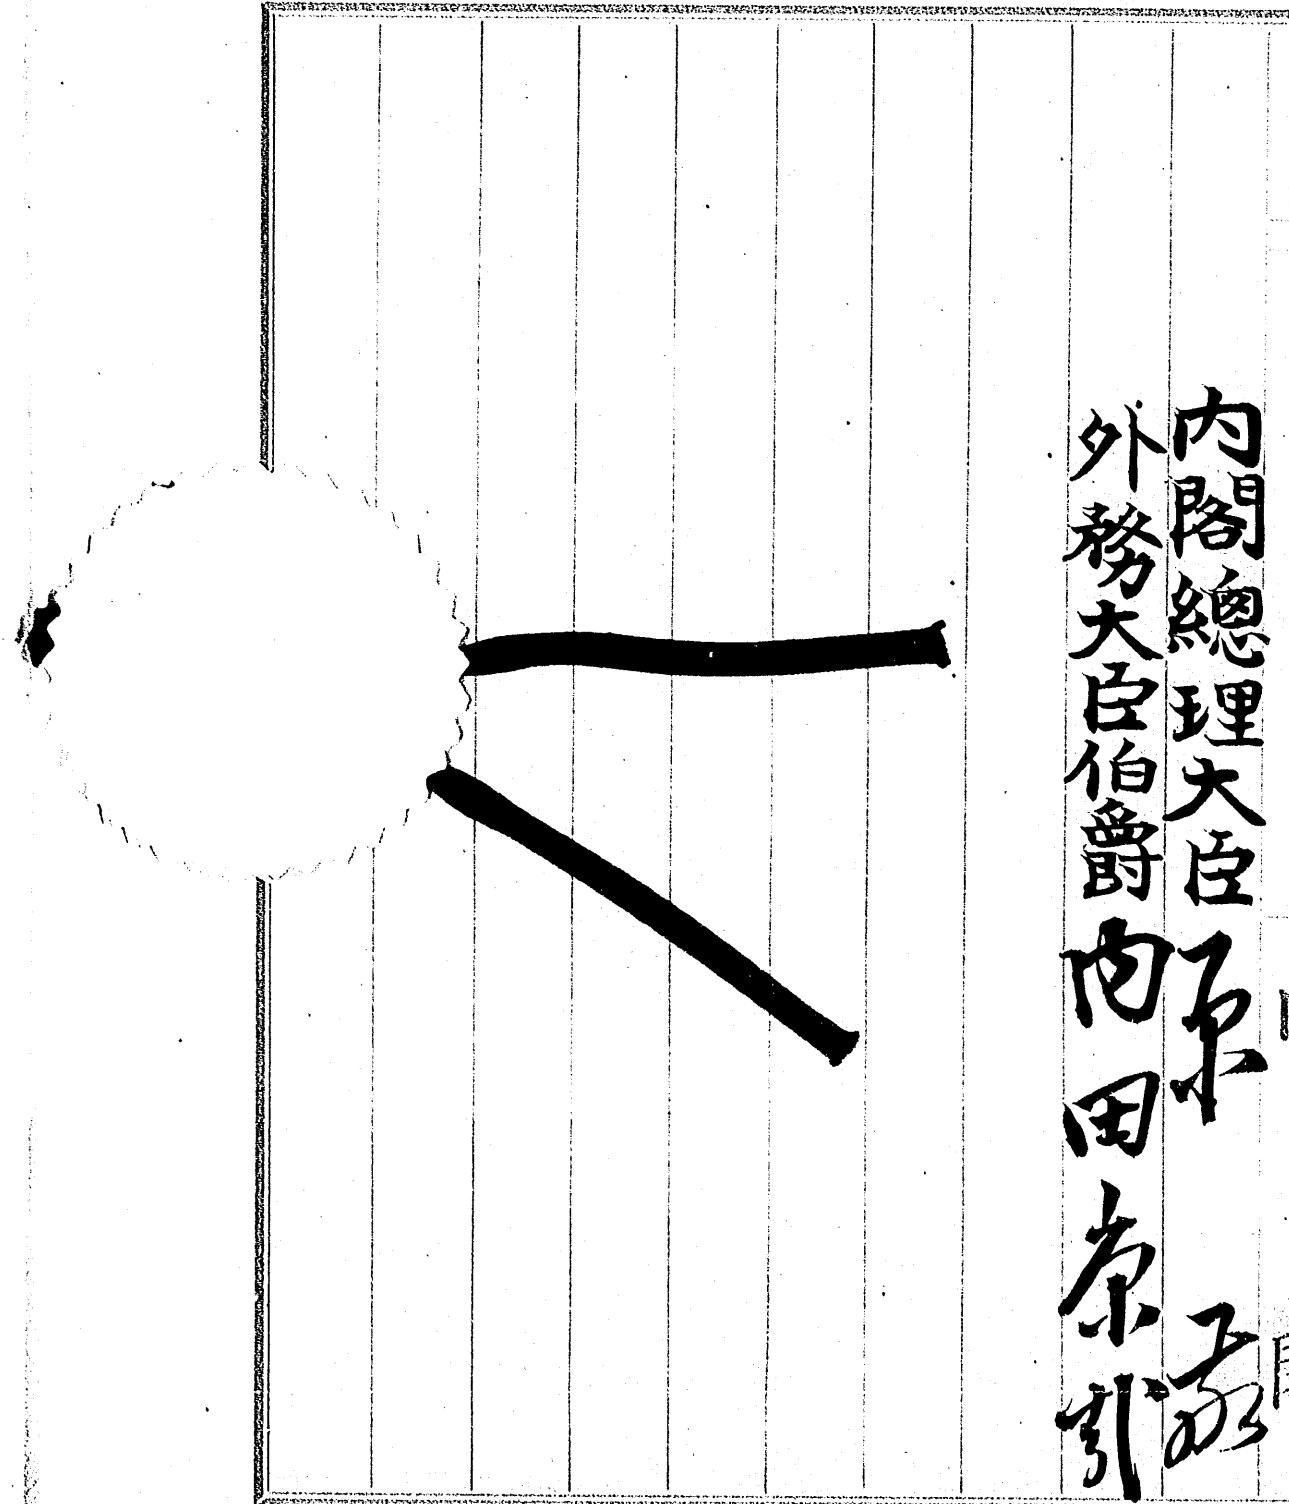 内閣總理大臣 原 敬
外務大臣伯爵 内田康哉